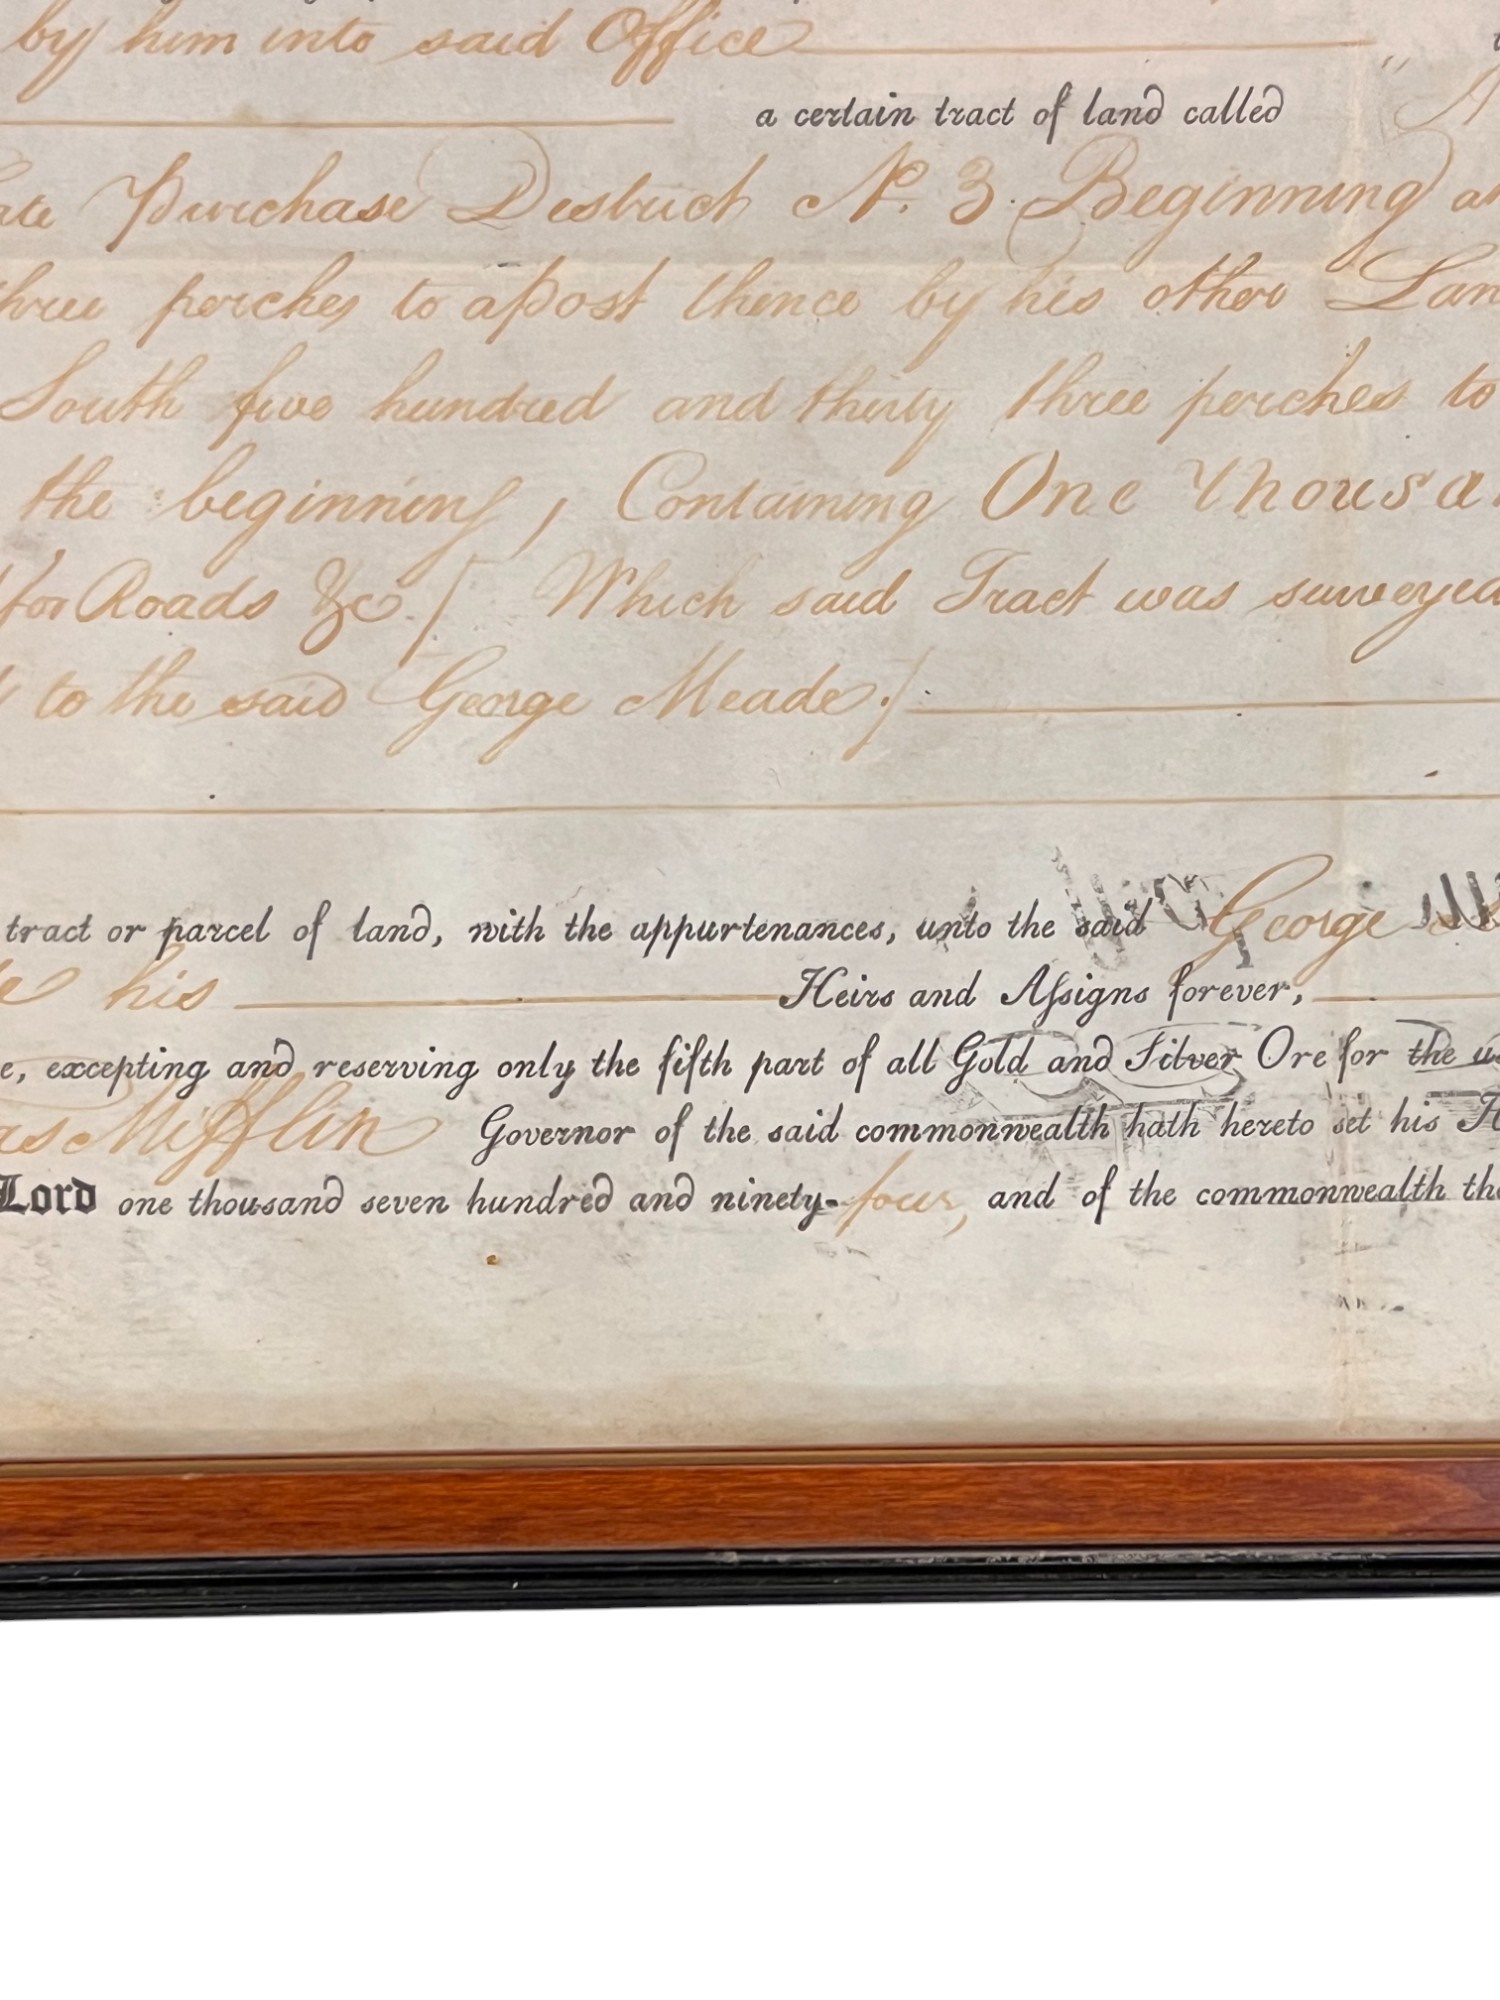 by him into said Office
a certain tract of land called
Purchase District No. 3. Beginning at
three perches to a Post thence by his other Lan
South five hundred and thirty three perches to
the beginning, Containing One Thousa
for Roads &c. Which said Tract was surveyed
to the said George Meade.
tract or parcel of land, with the appurtenances, unto the said George
his Heirs and Assigns forever,
e, excepting and reserving only the fifth part of all Gold and Silver Ore for the u
as Mifflin Governor of the said commonwealth hath hereto set his H
Lord one thousand seven hundred and ninety-four, and of the commonwealth the